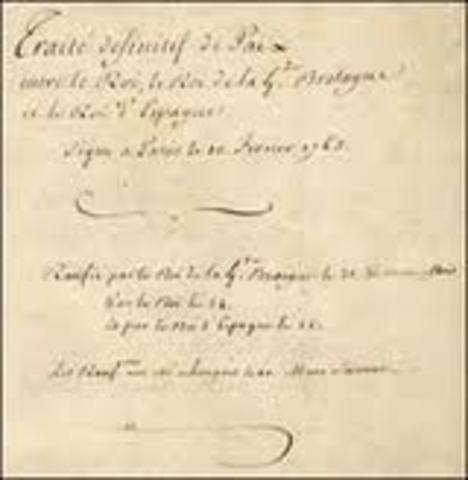 Traité definitif de Paix
entre le Roi, le Roi de la G.de Bretagne
et le Roi d'Espagne
Signé à Paris le 10 Fevrier 1763.
Ratifié par le Roi de la G.de Bretagne le 21
Par le Roi le 24
Et par le Roi d'Espagne le 25.
Les Ratif.ons